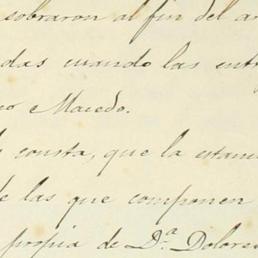 sobraron al fin del a
das cuando las entr
no e Macedo.
consta, que la estam
de las que componen
propia de D.ª Dolore